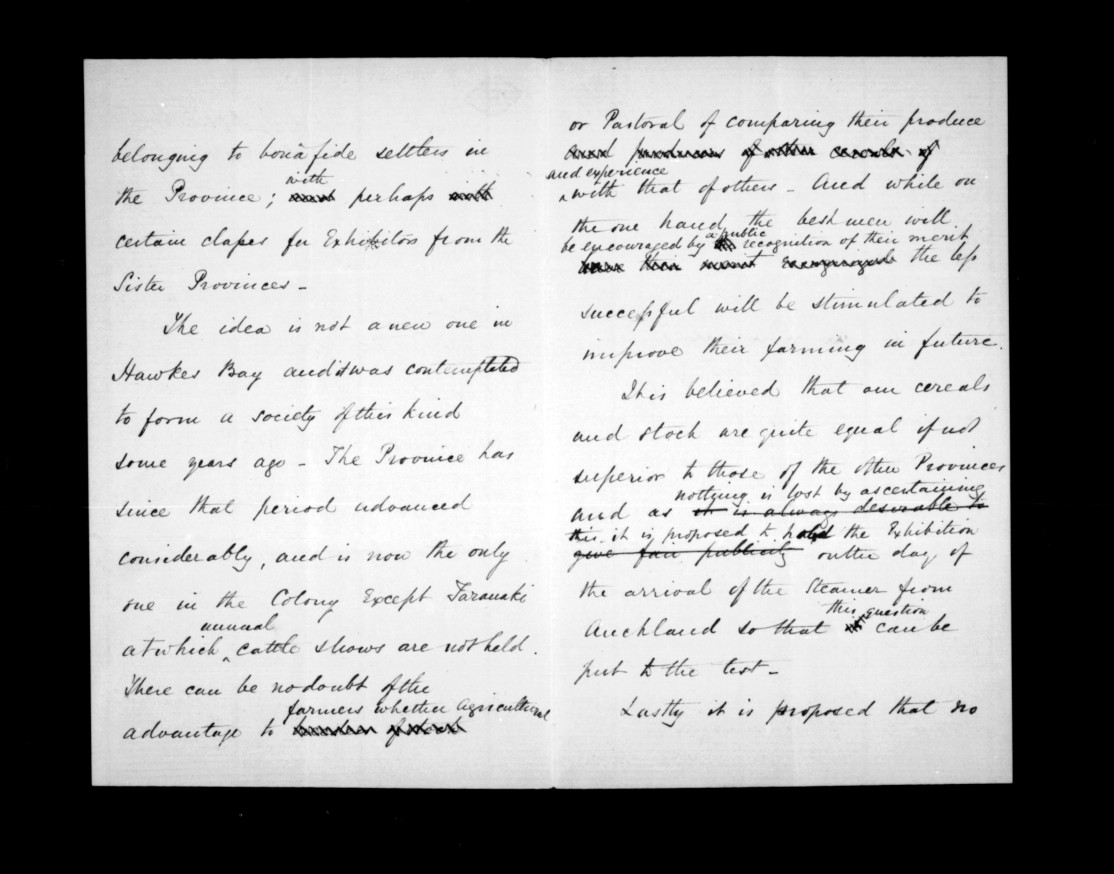 belonging to bonâ fide settlers in
with
the Province; and perhaps with
certain classes for Exhibitors from the
Sister Provinces -
The idea is not a new one in
Hawkes Bay and it was contemplated
to form a society of this kind
some years ago - The Province has
since that period advanced
considerably, and is now the only
one in the Colony Except Taranaki
annual
at which cattle shows are not held.
There can be no doubt of the
farmers whether Agricultural
advantage to
or Pastoral of comparing their produce
of other of
and experience
with that of others - And while on
the one hand the best men will
be encouraged by a public recognition of their merit
their merit recognized the less
successful will be stimulated to
improve their farming in future.
It is believed that our cereals
and stock are quite equal if not
superior to those of the other Provinces
nothing is lost by ascertaining
and as it is always desirable to
this it is proposed to hold the Exhibition
give fair publicity on the day of
the arrival of the Steamer from
this question
Auckland so that can be
put to the test -
Lastly it is proposed that no